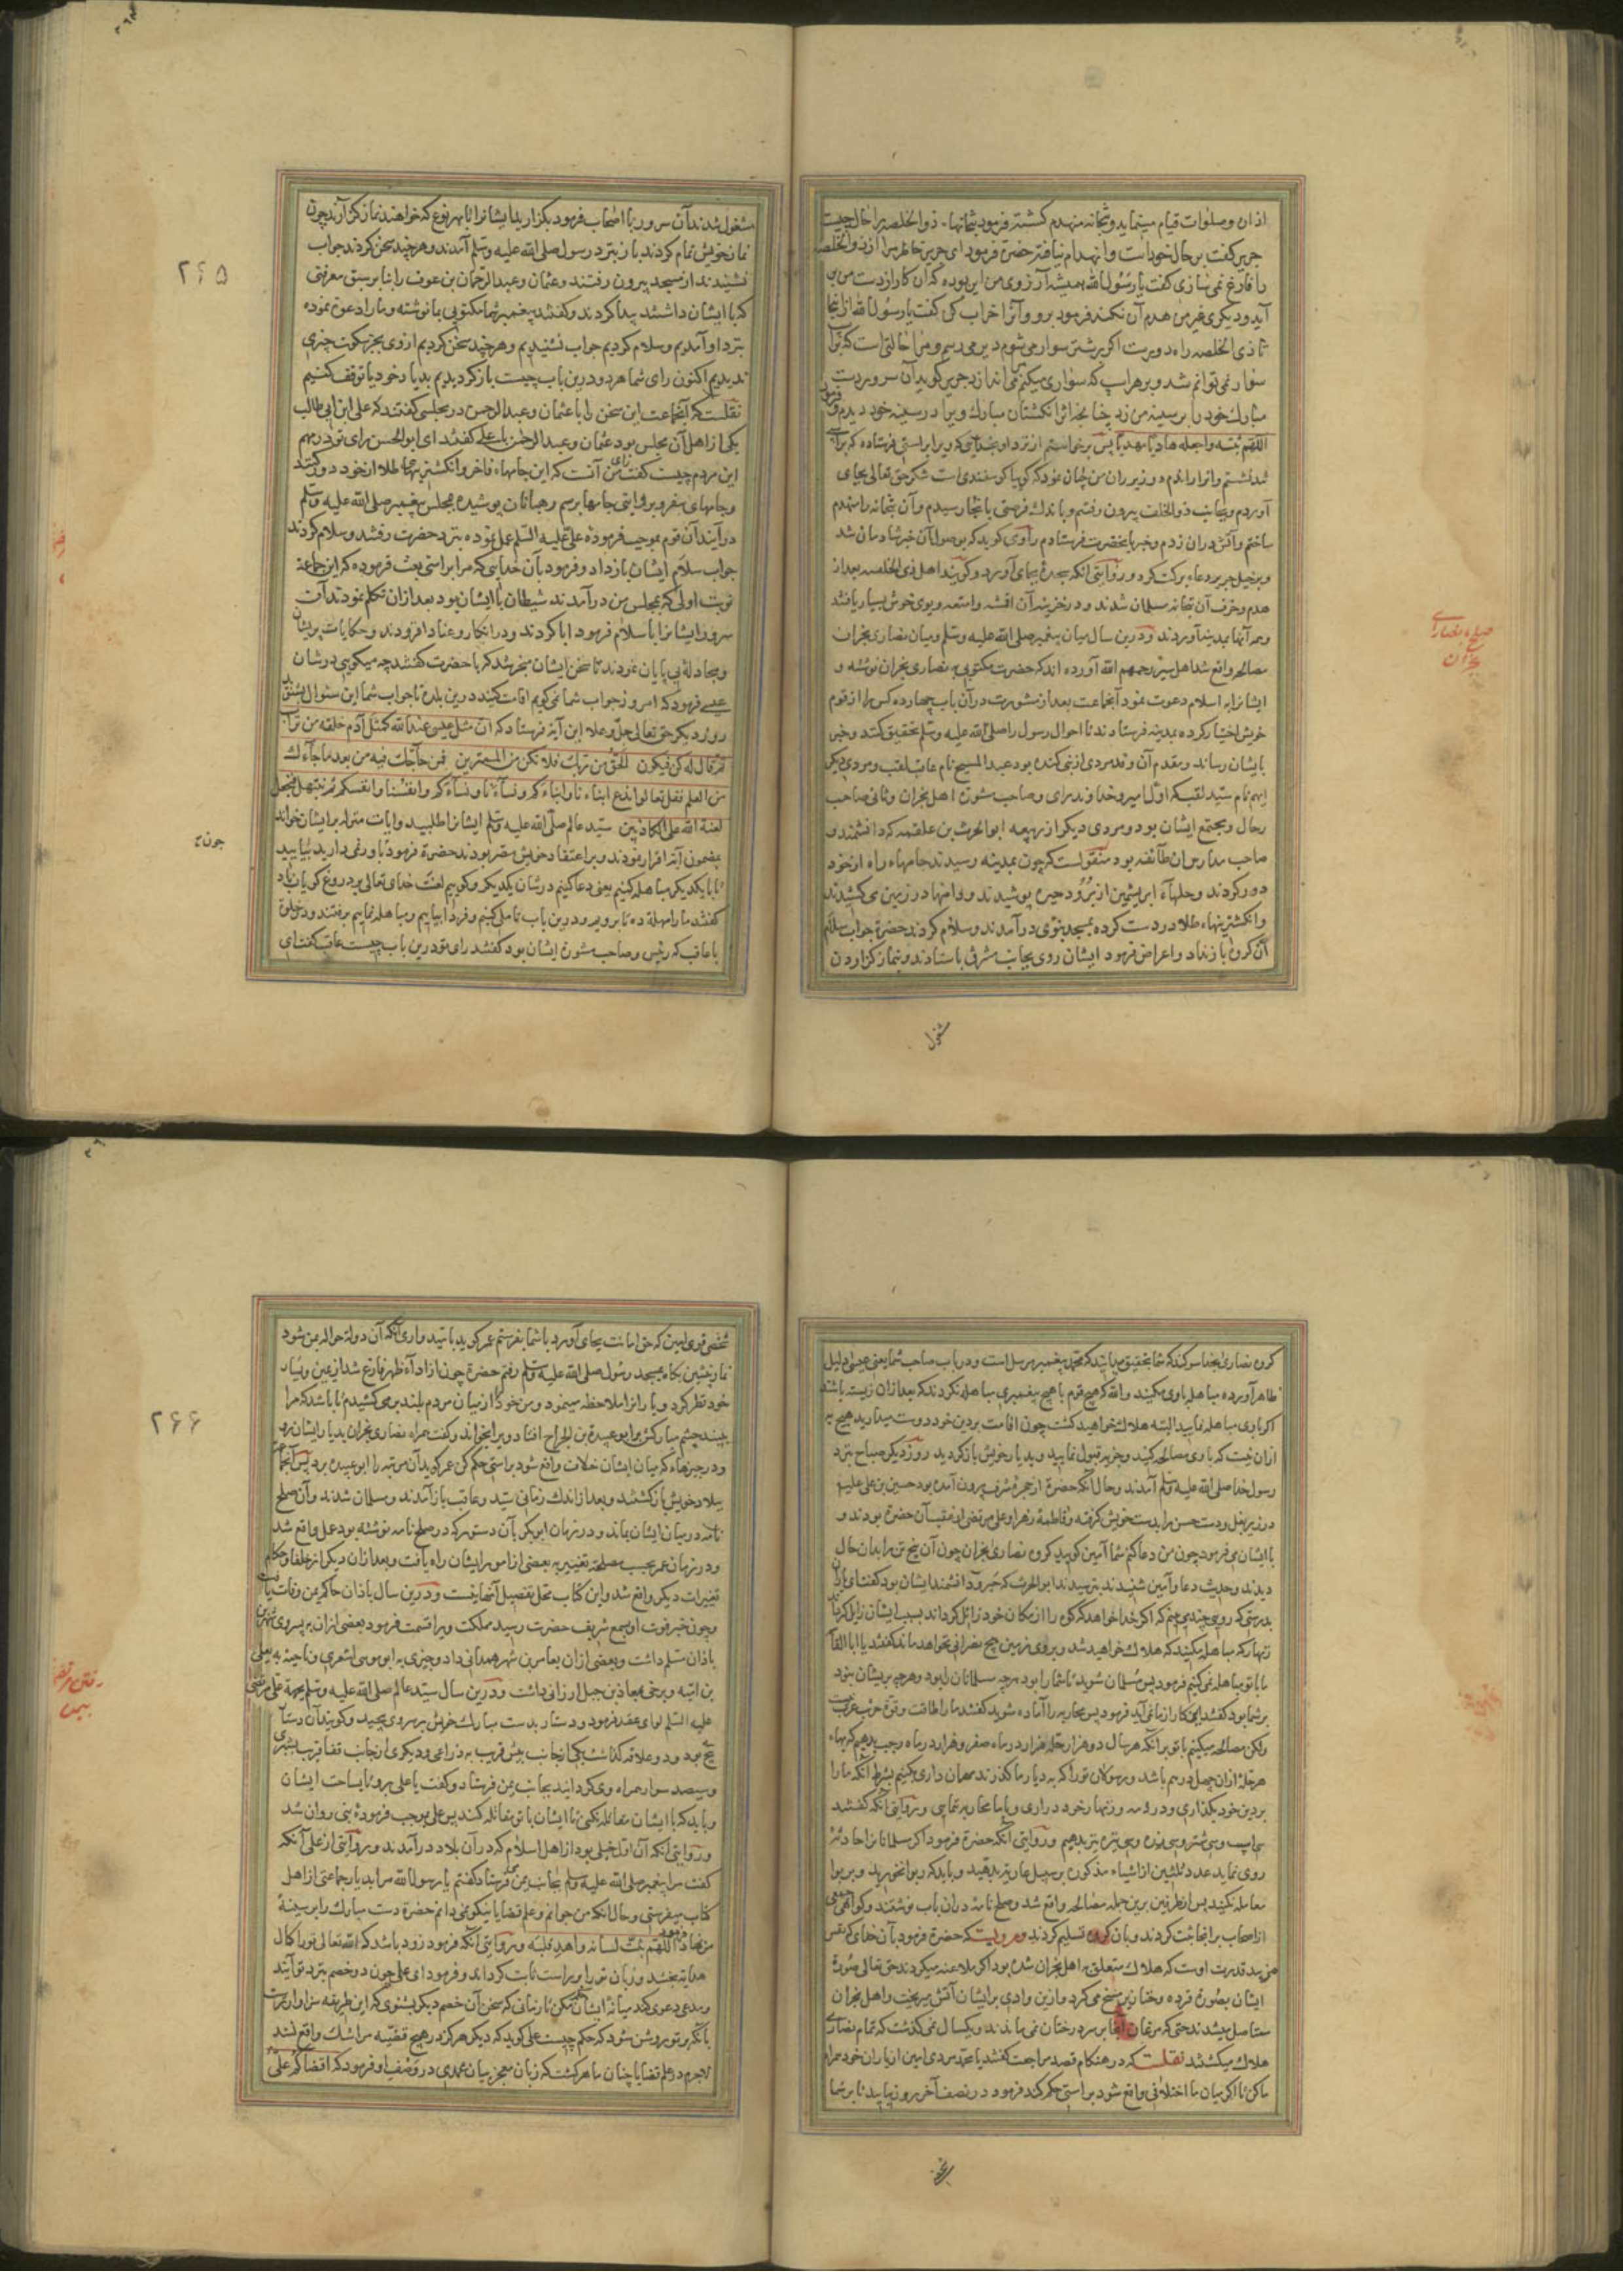 اذان وصلوات قیام مینماید و بتخانه منهدم کشته فرمود بتخانها، ذوالخلصه را حال چیست
جریر کفت بر حال خود است و انهدام نیافته حضرة فرمود ای جریر خاطر مرا از ذوالخلصه
را فارغ نمی سازی کفت یا رسول الله همیشه آرزوی من این بوده که آن کار از دست من بر
آید و دیکری غیر من هدم آن نکند فرمود برو و آنرا خراب کن کفت یا رسول الله از اینجا
تا ذی الخلصه راه دورست اکر بر شتر سوار می شوم دیر می رسم و مرا حالتی است که بر اسب
سوار نمی توانم شد و بر هر اسپ که سواری میکنم می اندازد جریر کوید آن سرور دست
مبارک خود را بر سینه من زد چنانچه اثر انکشتان مبارک ویرا در سینه خود دیدم و فرمود
اللهم ثبته واجعله هادیا مهدیا پس برخواستم از نزد او بخدایی که ویرا براستی فرستاده که بر اسپ
آوردم و بجانب ذوالخلصه بیرون رفتم و باندک فرصتی بآنجا رسیدم و آن بتخانه را منهدم
ساختم و آتش دران زدم و خبر بآنحضرت فرستادم راوی کوید که بوصول آن خبر شادمان شد
هدم و خرق آن بتخانه مسلمان شدند و در خزینه آن اقمشه و امتعه و بوی خوش بسیار یافتند
و همه آنها بمدینه آوردند و درین سال میان پیغمبر صلی الله علیه وسلم و میان نصاری نجران
مصالحه واقع شد اهل سیر رحمهم الله آورده اند که حضرت مکتوبی به نصاری نجران نوشته و
ایشانرا به اسلام دعوت نمود آنجماعت بعد از مشورت در آن باب چهارده کس را از قوم
خویش اختیار کرده بمدینه فرستادند تا احوال رسول را صلی الله علیه وسلم تحقیق کنند و خبر
بایشان رساند و مقدم آن وفد مردی از بنی کنده بود عبد المسیح نام عاقب لقب و مردی دیکر
ایهم نام سید لقب که اول امیر و خداوند رای و صاحب شورة اهل نجران و ثانی صاحب
رحال و مجتمع ایشان بود و مردی دیکر از ربیعه ابو الحرث بن علقمه که دانشمند و
صاحب مدارس آن طآئفه بود منقولست که چون بمدینه رسیدند جامهاء راه از خود
دور کردند و حلهآء ابریشمین از برود حبره پوشیدند و دامنها در زمین می کشیدند
و انکشتریهاء طلا در دست کرده بمسجد نبوی در آمدند و سلام کردند حضرة جواب سلام
آن کروه باز نداد و اعراض فرمود ایشان روی بجانب مشرق باستادند و بنماز کزاردن
مشغول
صلح با نصاری نجران
مشغول شدند آن سرور با اصحاب فرمود بکزارید ایشانرا تا بهر نوع که خواهند نماز کزارند چون
نماز خویش تمام کردند باز بنزد رسول صلی الله علیه وسلم آمدند و هر چند سخن کردند جواب
نشنیدند از مسجد بیرون رفتند و عثمان و عبد الرحمان بن عوف را بنا بر سبق معرفتی
که با ایشان داشتند پیدا کردند و کفتند پیغمبر شما مکتوبی بما نوشته و ما را دعوة نموده
بنزد او آمدیم و سلام کردیم جواب نشنیدیم و هر چند سخن کردیم از وی بجز سکوت چیزی
ندیدیم اکنون رای شما هر دو درین باب چیست باز کردیم بدیار خود یا توقف کنیم
نقلست که آنجماعت این سخن را با عثمان و عبد الرحمن در مجلسی کفتند که علی ابن ابی طالب
یکی از اهل آن مجلس بود عثمان و عبد الرحمن با علی کفتند ای ابو الحسن رای تو در مهم
این مردم چیست کفت رای من آنست که این جامهاء فاخر و انکشتریهاء طلا از خود دور کنند
و جامهای سفر و بروایتی جامها برسم رهبانان پوشیده بمجلس پیغمبر صلی الله علیه وسلم
در آیند آن قوم بموجب فرموده علی علیه السلم عمل نموده بنزد حضرت رفتند و سلام کردند
جواب سلام ایشان باز داد و فرمود بآن خدایی که مرا براستی بعث فرموده که این جماعة
نوبت اولی که بمجلس من در آمدند شیطان با ایشان بود بعد ازان تکلم نمودند آن
سرور ایشانرا باسلام فرمود ابا کردند و در انکار و عناد افزودند و حکایات پریشان
و مجادله بی پایان نمودند تا سخن ایشان منجر شد که با حضرت کفتند چه میکویی در شان
عیسی فرمود که امروز جواب شما نمی کویم اقامت کنید درین بلده تا جواب شما این سئوال بشنوید
روز دیکر حق تعالی جل و علا این آیة فرستاد که ان مثل عیسی عند الله کمثل آدم خلقه من تراب
ثم قال له کن فیکون الحق من ربک فلا تکن من الممترین فمن حآجک فیه من بعد ما جآءک
من العلم فقل تعالوا ندع ابناءنا وابناءکم ونسآءنا ونسآءکم وانفسنا وانفسکم ثم نبتهل فنجعل
لعنة الله علی الکاذبین سید عالم صلی الله علیه وسلم ایشانرا طلبید و ایات منزله بر ایشان خواند
بمضمون آیة اقرار ننمودند و بر اعتقاد خویش مصر بودند حضرة فرمود باور نمی دارید بیایید
تا با یکدیکر مباهله کنیم یعنی دعا کنیم در شان یکدیکر و کوییم لعنت خدای تعالی بر دروغ کویان باد
کفتند ما را مهلة ده تا برویم و درین باب تاملی کنیم و فردا بیاییم و مباهله نماییم برفتند و در خلوة
با عاقب که رئیس و صاحب شورة ایشان بود کفتند رای تو درین باب چیست عاقب کفت ای
۲۶۵
کروه نصاری بخدا سوکند که شما بتحقیق میدانید که محمد پیغمبر مرسل است و در باب صاحب شما یعنی عیسی دلیل
ظاهر آورده مباهله با وی مکنید والله که هیچ قوم با هیچ پیغمبری مباهله نکردند که بعد ازان زیسته باشند
اکر با وی مباهله نمایید البته هلاک خواهید کشت چون اقامت بر دین خود دوست میدارید هیچ به
ازان نیست که با وی مصالحه کنید و جزیه قبول نمایید و بدیار خویش باز کردید روز دیکر صباح بنزد
رسول خدا صلی الله علیه وسلم آمدند و حال آنکه حضرة از حجرۀ شرف بیرون آمده بود حسین بن علی علیه
در زیر بغل و دست حسن را بدست خویش کرفته و فاطمۀ زهرا و علی مرتضی از عقب آن حضرة بودند و
با ایشان می فرمود چون من دعا کنم شما آمین کویید کروه نصاری نجران چون آن پنج تن را بدان حال
دیدند و حدیث دعا و آمین شنیدند بترسیدند ابو الحرث که حبر و دانشمند ایشان بود کفت ای یاران
بدرستی که رویی چند می بینم که اکر خدا خواهد که کوه را از مکان خود زائل کرداند بسبب ایشان زایل کرداند
زینهار که مباهله مکنید که هلاک خواهید شد و بر روی زمین هیچ نصرانی نخواهد ماند کفتند یا ابا القاسم
ما با تو مباهله نمی کنیم فرمود پس مسلمان شوید تا شما را بود هر چه مسلمانان را بود و هر چه بر ایشان بود
بر شما بود کفتند این کار از ما نمی آید فرمود پس محاربه را آماده شوید کفتند ما را طاقت و قوة حرب عرب نیست
ولکن مصالحه میکنیم با تو بر آنکه هر سال دو هزار حله هزار در ماه صفر و هزار در ماه رجب بدهیم که بهاء
هر حله ازان چهل درهم باشد و رسولان تو را که به دیار ما کذرند مهمان داری بکنیم بشرط آنکه ما را
بر دین خود بکذاری و در ذمه و زینهار خود در آری و با ما محاربه ننمایی و بروایتی آنکه کفتند
سی اسپ و سی شتر و سی زره و سی نیزه نیز بدهیم و روایتی آنکه حضرة فرمود اکر مسلمانانرا حادثۀ
روی نماید عدد ثلثین از اشیاء مذکوره بر سبیل عاریه بدهید و باید که ربوا نخورید و بر ربوا
معامله نکنید پس از طرفین برین جمله مصالحه واقع شد و صلح نامه دران باب نوشتند و کواهی جمعی
از اصحاب بر انجا ثبت کردند و بآن کروه تسلیم کردند و مرویست که حضرة فرمود بآن خدای که نفس
من بید قدرت اوست که هلاک متعلق به اهل نجران شده بود اکر ملاعنه میکردند حق تعالی صورة
ایشان بصورة قرده و خنازیر مسخ می کرد و ازین وادی بر ایشان آتش میریخت و اهل نجران
مستاصل میشدند حتی که مرغان آنجا بر سر درختان نمی ماندند و یکسال نمی کذشت که تمام نصاری
هلاک میکشتند نقلست که در هنکام قصد مراجعت کفتند یا محمد مردی امین از یاران خود همراه
ما کن تا اکر میان ما اختلافی واقع شود براستی حکم کند فرمود در نصف آخر روز بیایید تا بر شما
شخصی
شخصی قوی امین که حق امانت بجای آورد با شما بفرستم عمر کوید بامید واری آنکه آن دولة حواله بمن شود
نماز پیشین بکاه بمسجد رسول صلی الله علیه وسلم رفتم حضرة چون از ادآء ظهر فارغ شد از یمین و یسار
خود نظر کرد و یارانرا ملاحظه مینمود و من خود را از میان مردم بلند بر می کشیدم تا باشد که مرا
بیند چشم مبارکش بر ابو عبیدة بن الجراح افتاد ویرا بخواند و کفت همراه نصاری نجران بدیار ایشان رو
و در چیزهاء که میان ایشان خلاف واقع شود براستی حکم کن عمر کوید آن مرتبه را ابو عبیده برد پس آنجماعة
ببلاد خویش باز کشتند و بعد از اندک زمانی سید و عاقب باز آمدند و مسلمان شدند و آن صلح
نامه در میان ایشان بماند و در زمان ابو بکر بآن دستور که در صلح نامه نوشته بود عمل واقع شد
و در زمان عمر بحسب مصلحة تغییر به بعضی از امور ایشان راه یافت و بعد ازان دیکر از خلفا و حکام
تغییرات دیکر واقع شد و این کتاب محل تفصیل آنها نیست و درین سال باذان حاکم یمن وفات یافت
و چون خبر فوت او بسمع شریف حضرت رسید مملکت ویرا قسمت فرمود بعضی ازان به پسر وی شهر بن
باذان مسلم داشت و بعضی ازان بعامر بن شهر همدانی داد و چیزی به ابو موسی اشعری و ناحیتة به یعلی
بن امیه و برخی بمعاذ بن جبل ارزانی داشت و درین سال سید عالم صلی الله علیه وسلم بجهة علی مرتضی
علیه السلم لوای عقد فرمود و دستار بدست مبارک خویش بر سر وی پیچید و کویند آن دستار
سه پیچ بود و دو علاقه کذاشت یکی از جانب پیش قریب به ذراعی و دیکری از جانب قفا قریب بشبری
و سیصد سوار همراه وی کردانید بجانب یمن فرستاد و کفت یا علی برو تا بساحت ایشان
و باید که با ایشان مقاتله نکنی تا ایشان با تو مقاتله کنند پس علی بموجب فرمودۀ نبی روان شد
و روایتی آنکه آن اول خیلی بود از اهل اسلام که در آن بلاد در آمدند و روایتی از علی آنکه
کفت مرا پیغمبر صلی الله علیه وسلم بجانب یمن فرستاد کفتم یا رسول الله مرا بدیار جماعتی از اهل
کتاب میفرستی و حال آنکه من جوانم و علم قضایا نیکو نمی دانم حضرة دست مبارک را بر سینۀ
من نهاد فرمود اللهم ثبت لسانه واهد قلبه و بروایتی آنکه فرمود زود باشد که الله تعالی تو را کمال
هدایة بخشد و زبان تو را بر راست ثابت کرداند و فرمود ای علی چون دو خصم بنزد تو آیند
و مدعی دعوی کند میانۀ ایشان حکم مکن تا زمانی که سخن آن خصم دیکر بشنوی که این طریقه سزاوار تر است
بآنکه بر تو روشن شود که حکم چیست علی کوید که دیکر هرکز در هیچ قضیه مرا شک واقع نشد
لاجرم در علم قضایا چنان ماهر کشت که زبان معجز بیان محمدی در وصف او فرمود که اقضاکم علی
۲۶۶
رفتن مرتضی بیمن